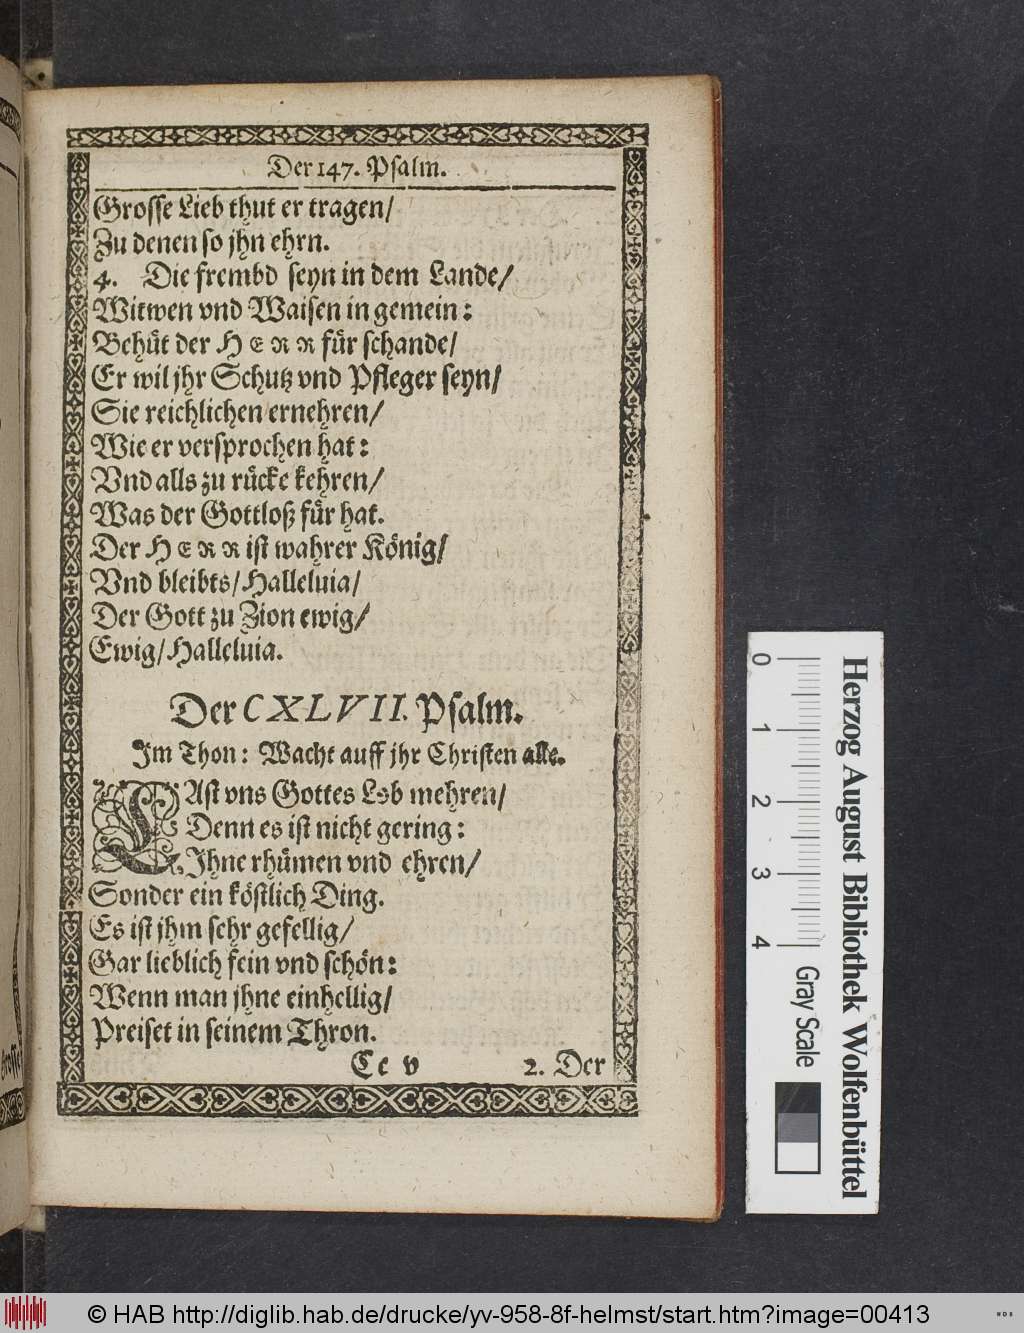 Der 147. Psalm.
Grosse Lieb thut er tragen/
Zu denen so jhn ehrn.
4. Die frembd seyn in dem Lande/
Witwen vnd Waisen in gemein:
Behüt der HERR für schande/
Er wil jhr Schutz vnd Pfleger seyn/
Sie reichlichen ernehren/
Wie er versprochen hat:
Vnd alls zu rücke kehren/
Was der Gottloß für hat.
Der HERR ist wahrer König/
Vnd bleibts/Halleluia/
Der Gott zu Zion ewig/
Ewig/Halleluia.
Der CXLVII. Psalm.
Im Thon: Wacht auff jhr Christen alle.
LAst vns Gottes Lob mehren/
Denn es ist nicht gering:
Ihne rhümen vnd ehren/
Sonder ein köstlich Ding.
Es ist jhm sehr gefellig/
Gar lieblich fein vnd schön:
Wenn man jhne einhellig/
Preiset in seinem Thron.
Cc v 2. Der
Grosse
0 1 2 3 4
Gray Scale
Herzog August Bibliothek Wolfenbüttel
© HAB http://diglib.hab.de/drucke/yv-958-8f-helmst/start.htm?image=00413